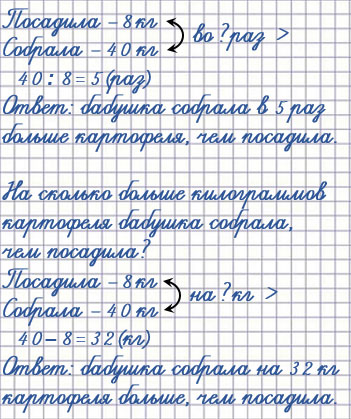 Посадила – 8 кг
во ? раз >
Собрала – 40 кг
40 : 8 = 5 (раз)
Ответ: бабушка собрала в 5 раз
больше картофеля, чем посадила.
На сколько больше килограммов
картофеля бабушка собрала,
чем посадила?
Посадила – 8 кг
на ? кг >
Собрала – 40 кг
40 – 8 = 32 (кг)
Ответ: бабушка собрала на 32 кг
картофеля больше, чем посадила.